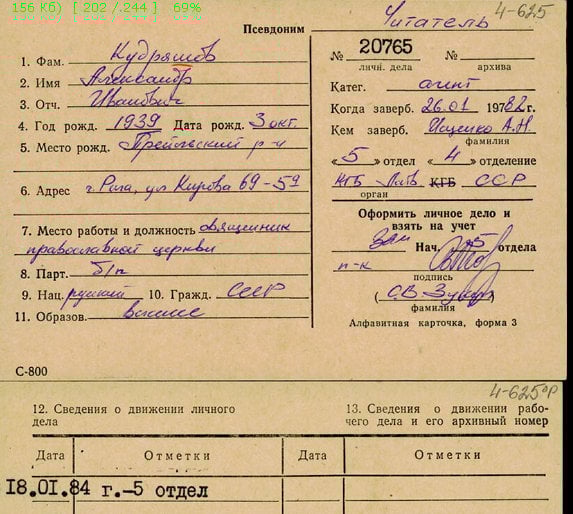 156 Кб) [ 202 / 244 ] 69%
4-625
Псевдоним Читатель
1. Фам. Кудряшов
2. Имя Александр
3. Отч. Иванович
4. Год рожд. 1939 Дата рожд. 3 окт.
5. Место рожд. Прейльский р-н
6. Адрес г. Рига, ул Кирова 69-59
7. Место работы и должность священник
православной церкви
8. Парт. б/п
9. Нац. русский 10. Гражд. СССР
11. Образов. высшее
С-800
№ 20765 №
личн. дела архива
Катег. агент
Когда заверб. 26.01 1982 г.
Кем заверб. Ищенко А.Н.
фамилия
«5» отдел «4» отделение
КГБ Латв КГБ ССР
орган
Оформить личное дело и
взять на учет
Зам Нач. 5 отдела
п-к
подпись
фамилия
Алфавитная карточка, форма 3
4-625об
12. Сведения о движении личного
дела
13. Сведения о движении рабо-
чего дела и его архивный номер
Дата Отметки Дата Отметки
18.01.84 г.-5 отдел